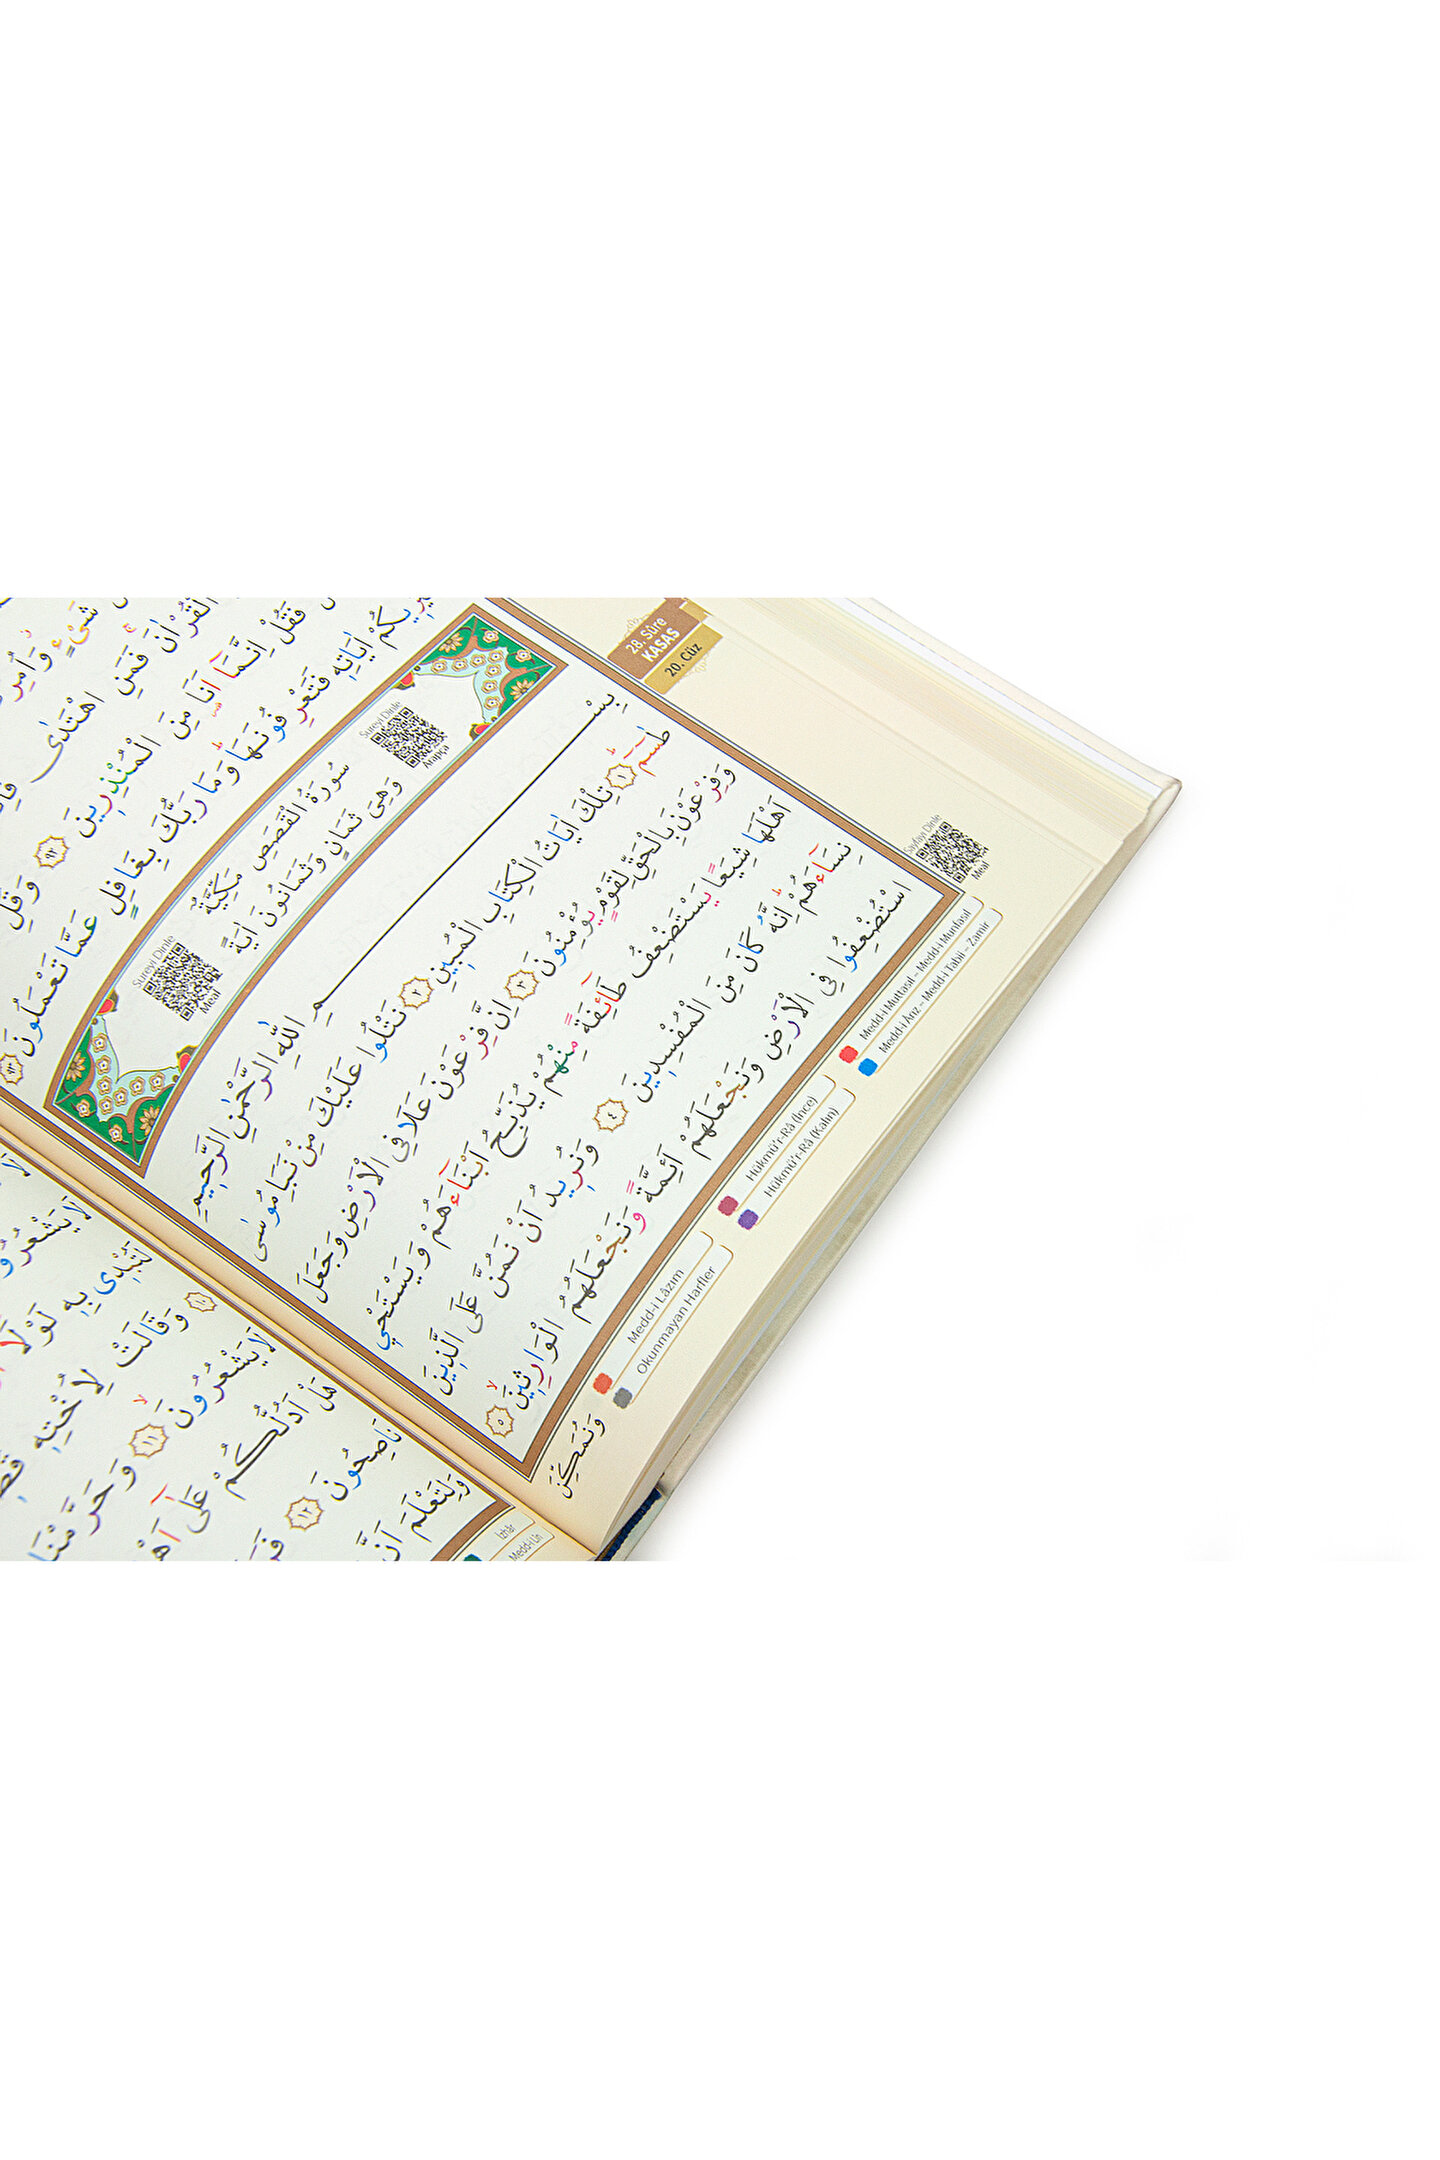 28. Sûre
KASAS
20. Cüz
شَىْءٍ وَاُمِرْ
الْقُرْاٰنَ فَمَنِ اهْتَدٰى
فَقُلْ اِنَّمَٓا اَنَا مِنَ الْمُنْذِرِينَ ﴿٩٢﴾ وَقُلِ
اٰيَاتِهٖ فَتَعْرِفُونَهَا وَمَا رَبُّكَ بِغَافِلٍ عَمَّا تَعْمَلُونَ ﴿٩٣﴾
Sureyi Dinle
Arapça
سُورَةُ الْقَصَصِ مَكِّيَّةٌ
وَهِىَ ثَمَانٍ وَثَمَانُونَ اٰيَةً
Sureyi Dinle
Meal
بِسْمِ اللّٰهِ الرَّحْمٰنِ الرَّحِيمِ
طٰسٓمٓ ﴿١﴾ تِلْكَ اٰيَاتُ الْكِتَابِ الْمُبِينِ ﴿٢﴾ نَتْلُوا عَلَيْكَ مِنْ نَبَاِ مُوسٰى
وَفِرْعَوْنَ بِالْحَقِّ لِقَوْمٍ يُؤْمِنُونَ ﴿٣﴾ اِنَّ فِرْعَوْنَ عَلَا فِى الْاَرْضِ وَجَعَلَ
اَهْلَهَا شِيَعًا يَسْتَضْعِفُ طَٓائِفَةً مِنْهُمْ يُذَبِّحُ اَبْنَٓاءَهُمْ وَيَسْتَحْيِ
نِسَٓاءَهُمْ اِنَّهُ كَانَ مِنَ الْمُفْسِدِينَ ﴿٤﴾ وَنُرِيدُ اَنْ نَمُنَّ عَلَى الَّذِينَ
اسْتُضْعِفُوا فِى الْاَرْضِ وَنَجْعَلَهُمْ اَئِمَّةً وَنَجْعَلَهُمُ الْوَارِثِينَ ﴿٥﴾
وَنُمَكِّنَ
Sayfayı Dinle
Meal
Medd-i Muttasıl – Medd-i Munfasıl
Medd-i Arız – Medd-i Tabii – Zamir
Hükmü'r-Râ (İnce)
Hükmü'r-Râ (Kalın)
Medd-i Lâzım
Okunmayan Harfler
لَا يَشْعُرُو
لَتُبْدِى بِهٖ لَوْلَٓا
وَقَالَتْ لِاُخْتِهٖ
لَا يَشْعُرُونَ ﴿١١﴾ وَحَرَّمْنَا
هَلْ اَدُلُّكُمْ عَلٰٓى
نَاصِحُونَ ﴿١٢﴾
وَلِتَعْلَمَ اَنَّ
İzhâr
Medd-i Lîn